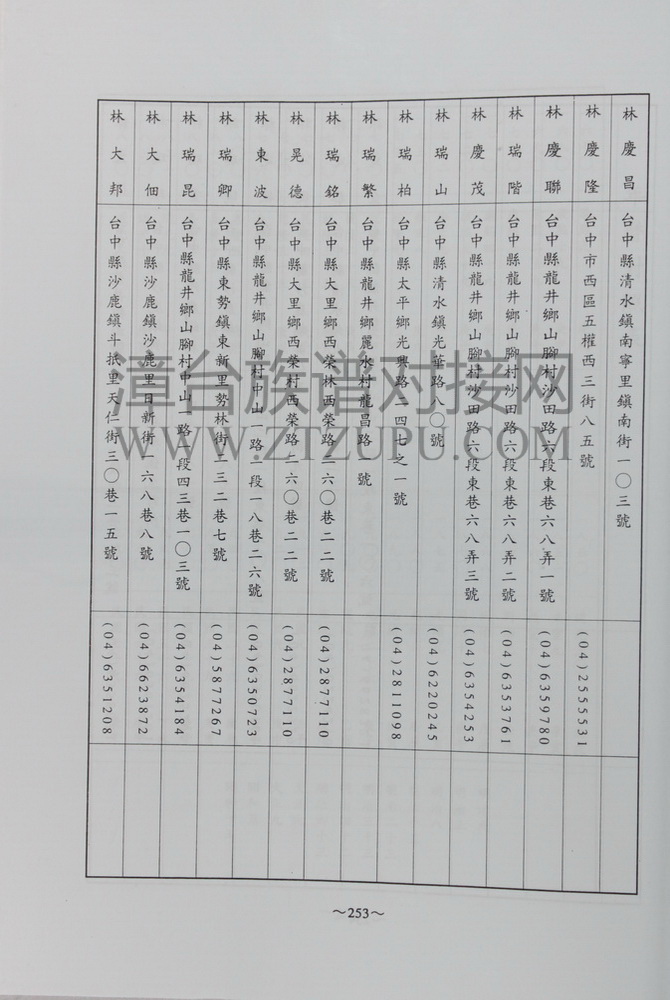 林慶昌 台中縣清水鎮南寧里鎮南街一〇三號
林慶隆 台中市西區五權西三街八五號 (04)2555531
林慶聯 台中縣龍井鄉山腳村沙田路六段東巷六八弄一號 (04)6359780
林瑞階 台中縣龍井鄉山腳村沙田路六段東巷六八弄二號 (04)6353761
林慶茂 台中縣龍井鄉山腳村沙田路六段東巷六八弄三號 (04)6354253
林瑞山 台中縣清水鎮光華路八〇號 (04)6220245
林瑞柏 台中縣太平鄉光興路二四七之一號 (04)2811098
林瑞繁 台中縣龍井鄉麗水村龍昌路 號
林瑞銘 台中縣大里鄉西榮林西榮路二六〇巷二二號 (04)2877110
林晃德 台中縣大里鄉西榮村西榮路二六〇巷二二號 (04)2877110
林東波 台中縣龍井鄉山腳村中山一路二段一八巷二六號 (04)6350723
林瑞卿 台中縣東勢鎮東新里勢林街二三二巷七號 (04)5877267
林瑞昆 台中縣龍井鄉山腳村中山一路一段四三巷一〇三號 (04)6354184
林大佃 台中縣沙鹿鎮沙鹿里日新街一六八巷八號 (04)6623872
林大邦 台中縣沙鹿鎮斗抵里天仁街三〇巷一五號 (04)6351208
~253~
漳台族谱对接网
WWW.ZTZUPU.COM